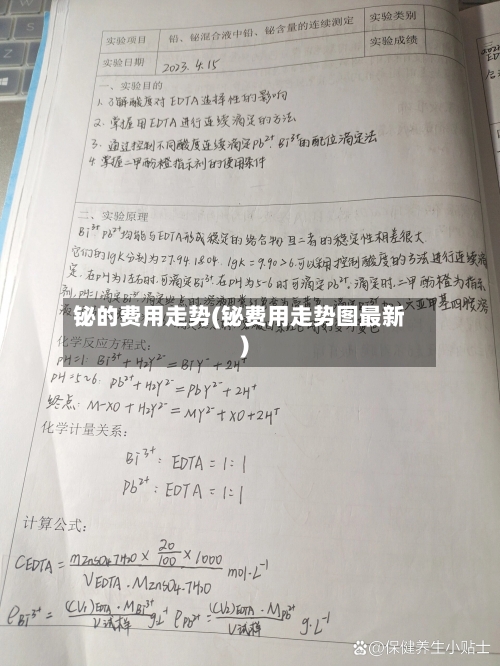 实验项目 铅、铋混合液中铅、铋含量的连续测定 实验类别
实验成绩
实验日期 2023.4.15
一、实验目的
1. 了解酸度对EDTA选择性的影响
2. 掌握用EDTA进行连续滴定的方法
3. 通过控制不同酸度连续滴定Pb²⁺、Bi³⁺的配位滴定法
4. 掌握二甲酚橙指示剂的使用条件
二、实验原理
Bi³⁺ Pb²⁺均能与EDTA形成稳定的络合物且二者的稳定性相差很大
它们的lgK分别为27.94 18.04. lgK=9.90>6可以采用控制酸度的方法进行连续滴
定. 在pH为1左右时可滴定Bi³⁺在pH为5-6时可滴定Pb²⁺滴定时,二甲酚橙为指示
剂. pH=1滴定Bi³⁺ 六亚甲基四胺溶
铋的费用走势(铋费用走势图最新
)
化学反应方程式:
pH=1: Bi³⁺+H₂Y²⁻=BiY⁻+2H⁺
pH=5~6: Pb²⁺+H₂Y²⁻=PbY²⁻+2H⁺
终点: M-XO+H₂Y²⁻=MY²⁻+XO+2H⁺
化学计量关系:
Bi³⁺: EDTA=1:1
Pb²⁺: EDTA=1:1
计算公式:
CEDTA= mZnSO₄·7H₂O × 20/100 × 1000 / VEDTA·MZnSO₄·7H₂O mol·L⁻¹
ρBi³⁺= (CV₁)EDTA·MBi³⁺ / V试样 g·L⁻¹ ρPb²⁺= (CV₂)EDTA·MPb²⁺ / V试样 g·L⁻¹
@保健养生小贴士